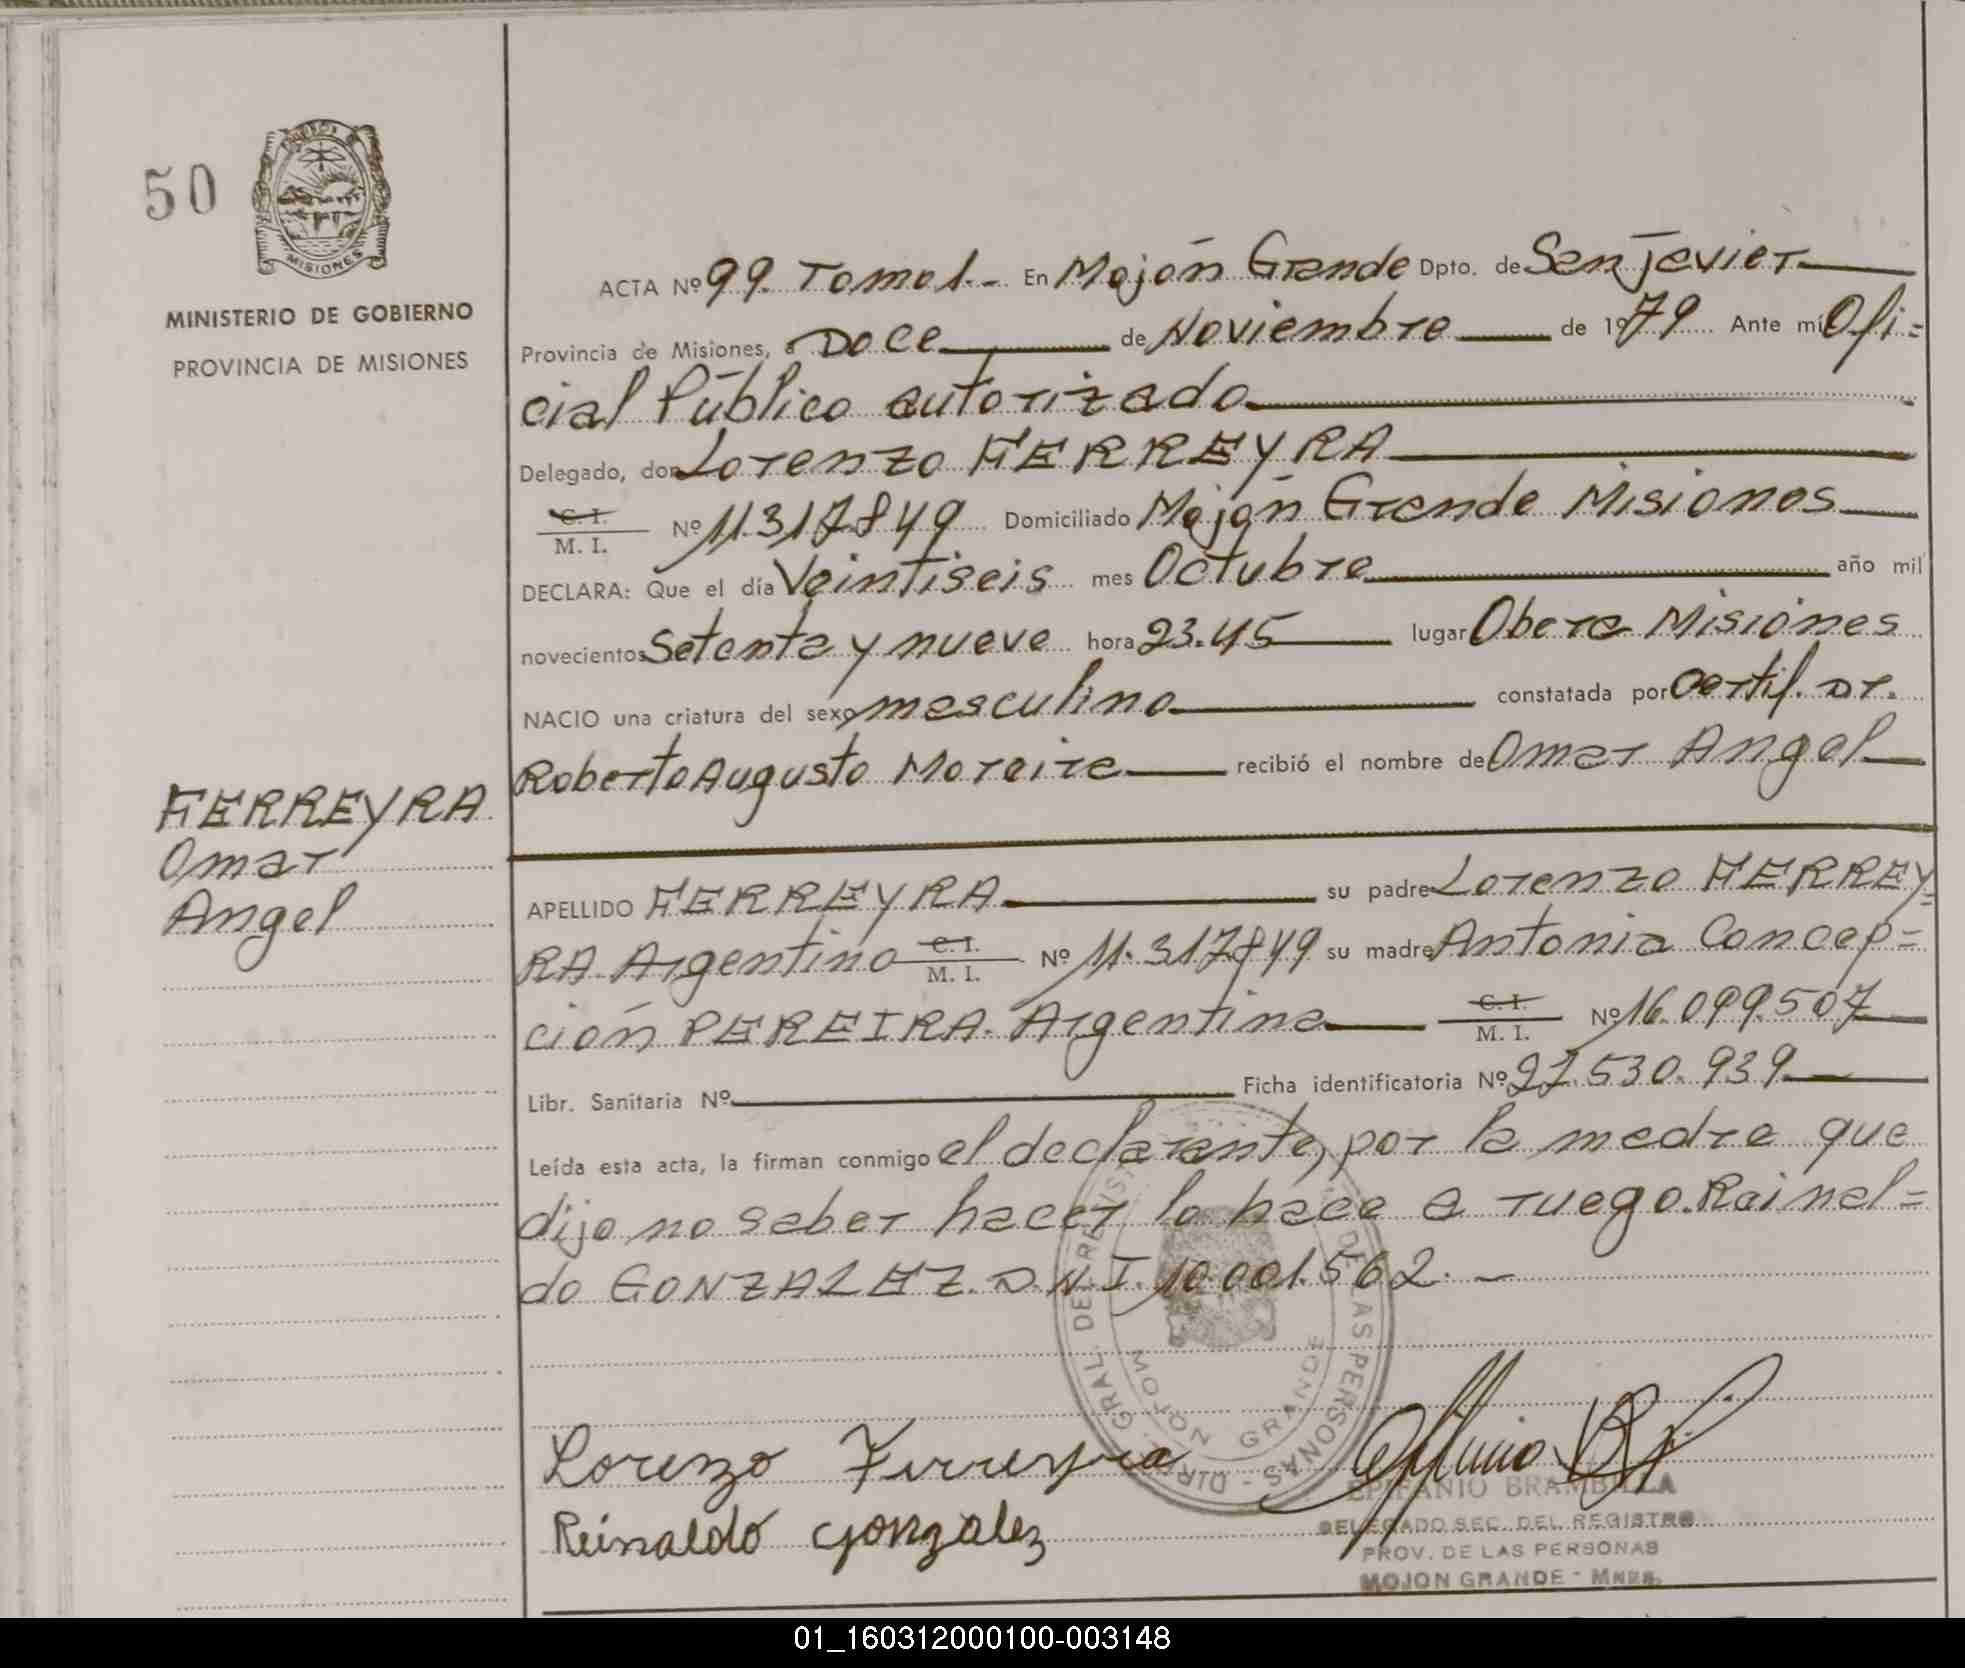 50
MISIONES
MINISTERIO DE GOBIERNO
PROVINCIA DE MISIONES
ACTA Nº 99. Tomo 1.- En Mojón Grande Dpto. de San Javier
Provincia de Misiones, a Doce de Noviembre de 1979 Ante mí Ofi=
cial Público autorizado
Delegado, don Lorenzo FERREYRA
C. I.
M. I. Nº 11.317.849 Domiciliado Mojón Grande Misiones
DECLARA: Que el día Veintiseis mes Octubre año mil
novecientos Setenta y nueve hora 23.45 lugar Obera Misiones
NACIO una criatura del sexo masculino constatada por Certif. Dr.
Roberto Augusto Moreira recibió el nombre de Omar Angel
FERREYRA
Omar
Angel
APELLIDO FERREYRA su padre Lorenzo FERREY=
RA Argentino C. I. M. I. Nº 11.317.849 su madre Antonia Concep=
ción PEREIRA. Argentina C. I. M. I. Nº 16.099.507
Libr. Sanitaria Nº Ficha identificatoria Nº 27.530.939
Leída esta acta, la firman conmigo el declarante, por la madre que
dijo no saber hacer lo hace a ruego. Reinal=
do GONZALEZ. D.N.I. 10.001.562.-
DIR. GRAL. DE REGIST DE LAS PERSONAS
MOJON GRANDE
Lorenzo Ferreyra
Reinaldo Gonzalez
EPIFANIO BRAMBILLA
DELEGADO SEC. DEL REGISTRO
PROV. DE LAS PERSONAS
MOJON GRANDE - Mnes.
01_160312000100-003148